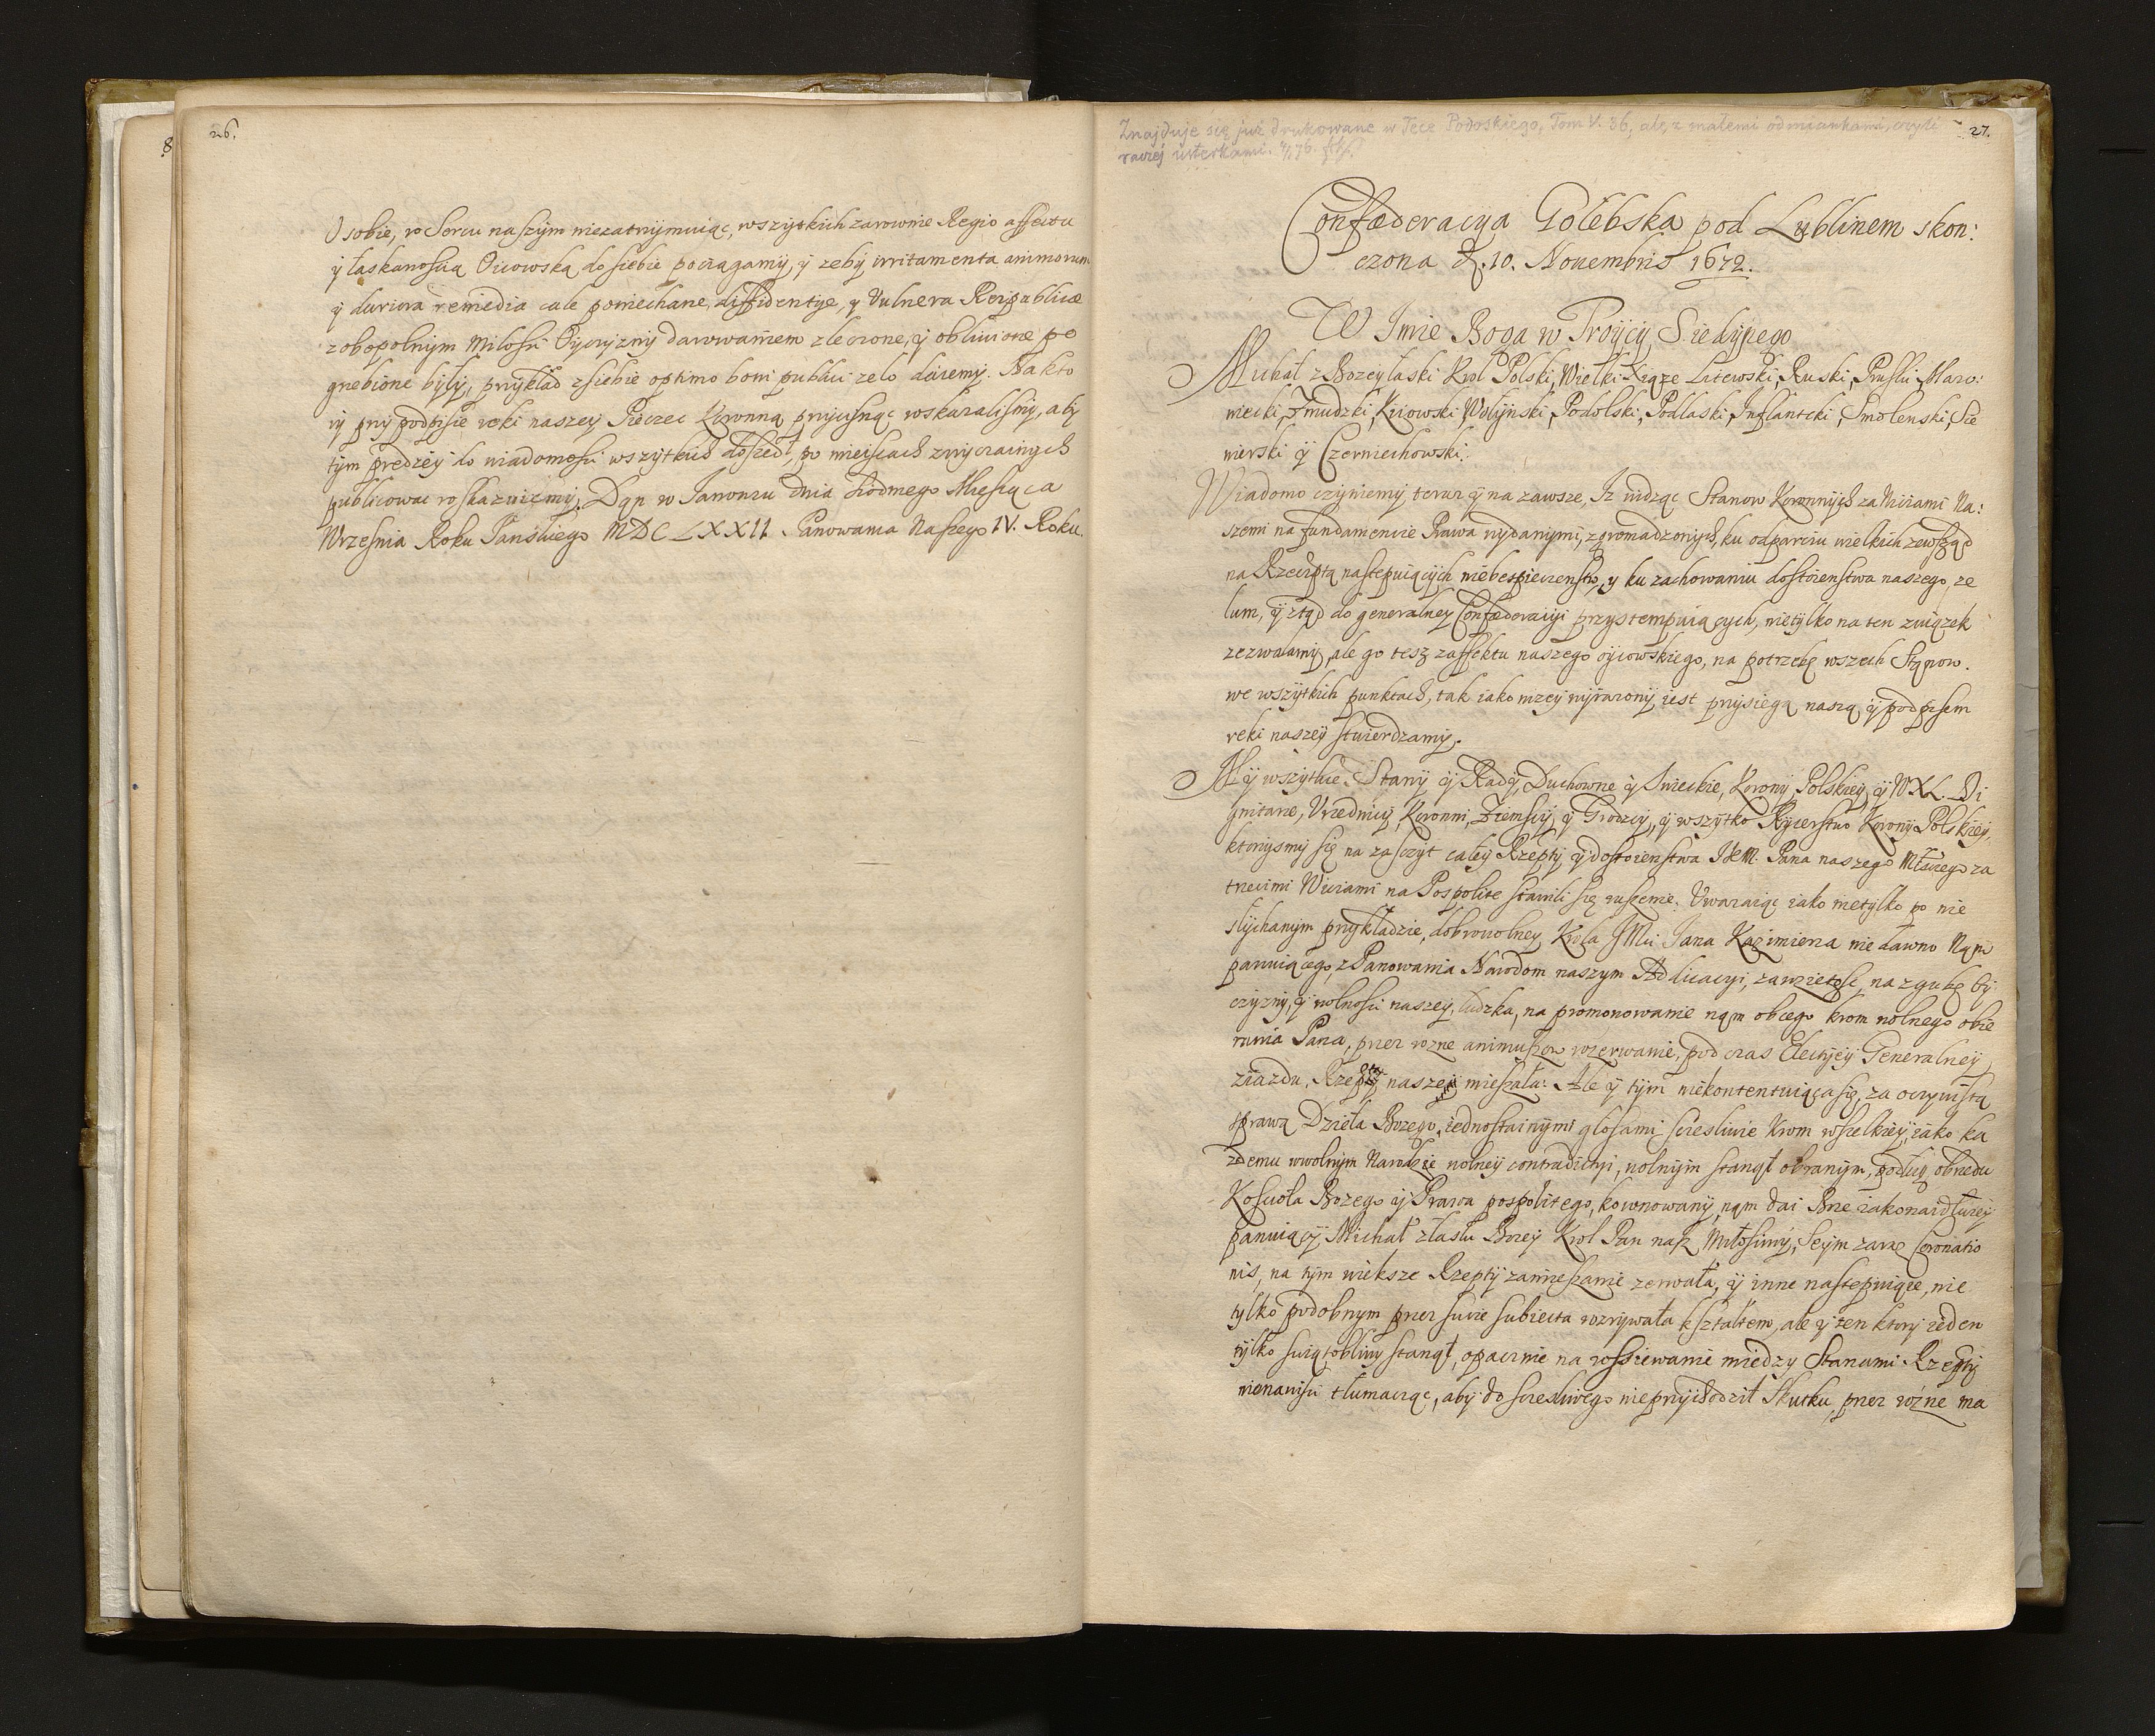 26.
Osobie, w Sercu naszym niezatrzymuiąc, wszytkich zarownie Regio affectu
ÿ łaskawoscią Oicowską do siebie pociągamÿ, ÿ zebÿ irritamenta animorum
ÿ duriora remedia cale poniechane, diffidentÿe, ÿ Vulnera Reipublicæ
zobopolnÿm Miłosci Oÿczÿznÿ darowaniem zleczone, ÿ obliuione po
gnebione bÿłÿ, przÿkład z siebie optimo boni publici zelo daiemÿ. Na kto
rÿ przÿ podpisie reki naszeÿ Pieczec Koronną przÿcisnąc roskazalismÿ, abÿ
tÿm predzeÿ do wiadomosci wszÿtkich doszedł, po mieÿscach zwÿczainÿch
publicowac roskazuiemÿ. Dąn w Janowcu dnia siodmego Miesiąca
Wrzesnia Roku Panskiego MDCLXXII. Panowania Naszego IV. Roku.
27.
Znajduje się już drukowane w Tece Podoskiego, Tom V. 36, ale z małemi odmiankami, czyli
raczej usterkami.
Confæderacÿa Golebska pod Lublinem skon:
czona d. 10. Nouembris 1672.
W Imie Boga w Troÿcÿ S. iedÿnego
Michał z Bozeÿ łaski Krol Polski, Wielki Xiąze Litewski, Ruski, Pruski, Mazo:
wiecki, Zmudzki, Kiiowski, Wołÿnski, Podolski, Podlaski, Inflantcki, Smolenski, Sie
wierski ÿ Czerniechowski.
Wiadomo czÿniemÿ teraz ÿ na zawsze, Iz widząc Stanow Koronnÿch za Wiciami Na:
szemi na fundamencie Prawa wÿdanÿmi, zgromadzonÿch, ku odparciu wielkich zewsząd
na Rzeczptą nastepuiącÿch niebespieczenstw, ÿ ku zachowaniu dostoienstwa naszego, ze
lum, ÿ ztąd do generalneÿ Confæderacÿi przystempuiącÿch, nietÿlko na ten związek
zezwalamÿ, ale go tesz z affektu naszego oÿcowskiego, na potrzebę wszech Stąnow.
we wszÿtkich punktach, tak iako nizeÿ wÿrazonÿ iest przÿsiegą naszą ÿ podpisem
reki naszeÿ stwierdzamÿ.
Mÿ wszÿtkie Stanÿ ÿ Radÿ, Duchowne ÿ Swieckie, Koronÿ Polskieÿ ÿ WXL. Di
gnitarze, Vrzednicÿ, Koronni, Ziemscÿ, ÿ Grodzcÿ, ÿ wszÿtko Rÿcerstwo Koronÿ Polskieÿ,
ktorzÿsmÿ się na zasczÿt całeÿ Rzeptÿ ÿ dostoienstwa JKM. Pana naszego Młciego za
trzecimi Wiciami na Pospolite stawili się ruszenie. Vwazaiąc iako nietÿlko po nie
słÿchanÿm przÿkładzie, dobrowolneÿ Krola JMci Jana Kazimierza nie dawno Nąm
panuiącego, z Panowania Narodom naszÿm Abdicacÿi, zawzietosc na zgubę Oÿ
czÿznÿ, ÿ wolnosci naszeÿ, ludzka, na promonowanie nąm obcego krom wolnego obie
rania Pana, przez rozne animuszow rozerwanie, pod czas Electÿeÿ Generalneÿ
ziazdu, Rzeptÿ naszeÿ mieszała: Ale ÿ tÿm niekontentuiąca się, za oczÿwistą
sprawą Dzieła Bozego, iednostainÿmi głosami sczesliwie krom wszelkieÿ, iako ka
zdemu wwolnÿm Narodzie wolneÿ contradictÿi, wolnÿm stanął obranÿm, podług obrzedu
Koscioła Bozego ÿ Prawa pospolitego, koronowanÿ, nąm dai Boze iakonaidłuzeÿ
panuiącÿ Michał z łaski Bozeÿ Krol Pan nasz Miłosciwÿ, Seÿm zaraz Coronatio
nis, na tÿm wieksze Rzeptÿ zamieszanie zerwała, ÿ inne nastepuiące, nie
tylko podobnym przez swoie subiecta rozrÿwała kształtem, ale ÿ ten ktorÿ ieden
tÿlko swiątobliwÿ stanął, opacznie na rossiewanie międzÿ Stanami Rzeptÿ
nienawisci tłumacząc, abÿ do sczesliwego nie przÿchodził skutku, przez rożne ma